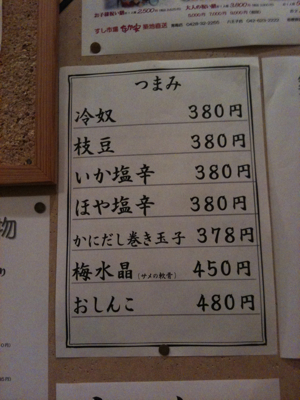 つまみ
冷奴 380円
枝豆 380円
いか塩辛 380円
ほや塩辛 380円
かにだし巻き玉子 378円
梅水晶(サメの軟骨) 450円
おしんこ 480円
物